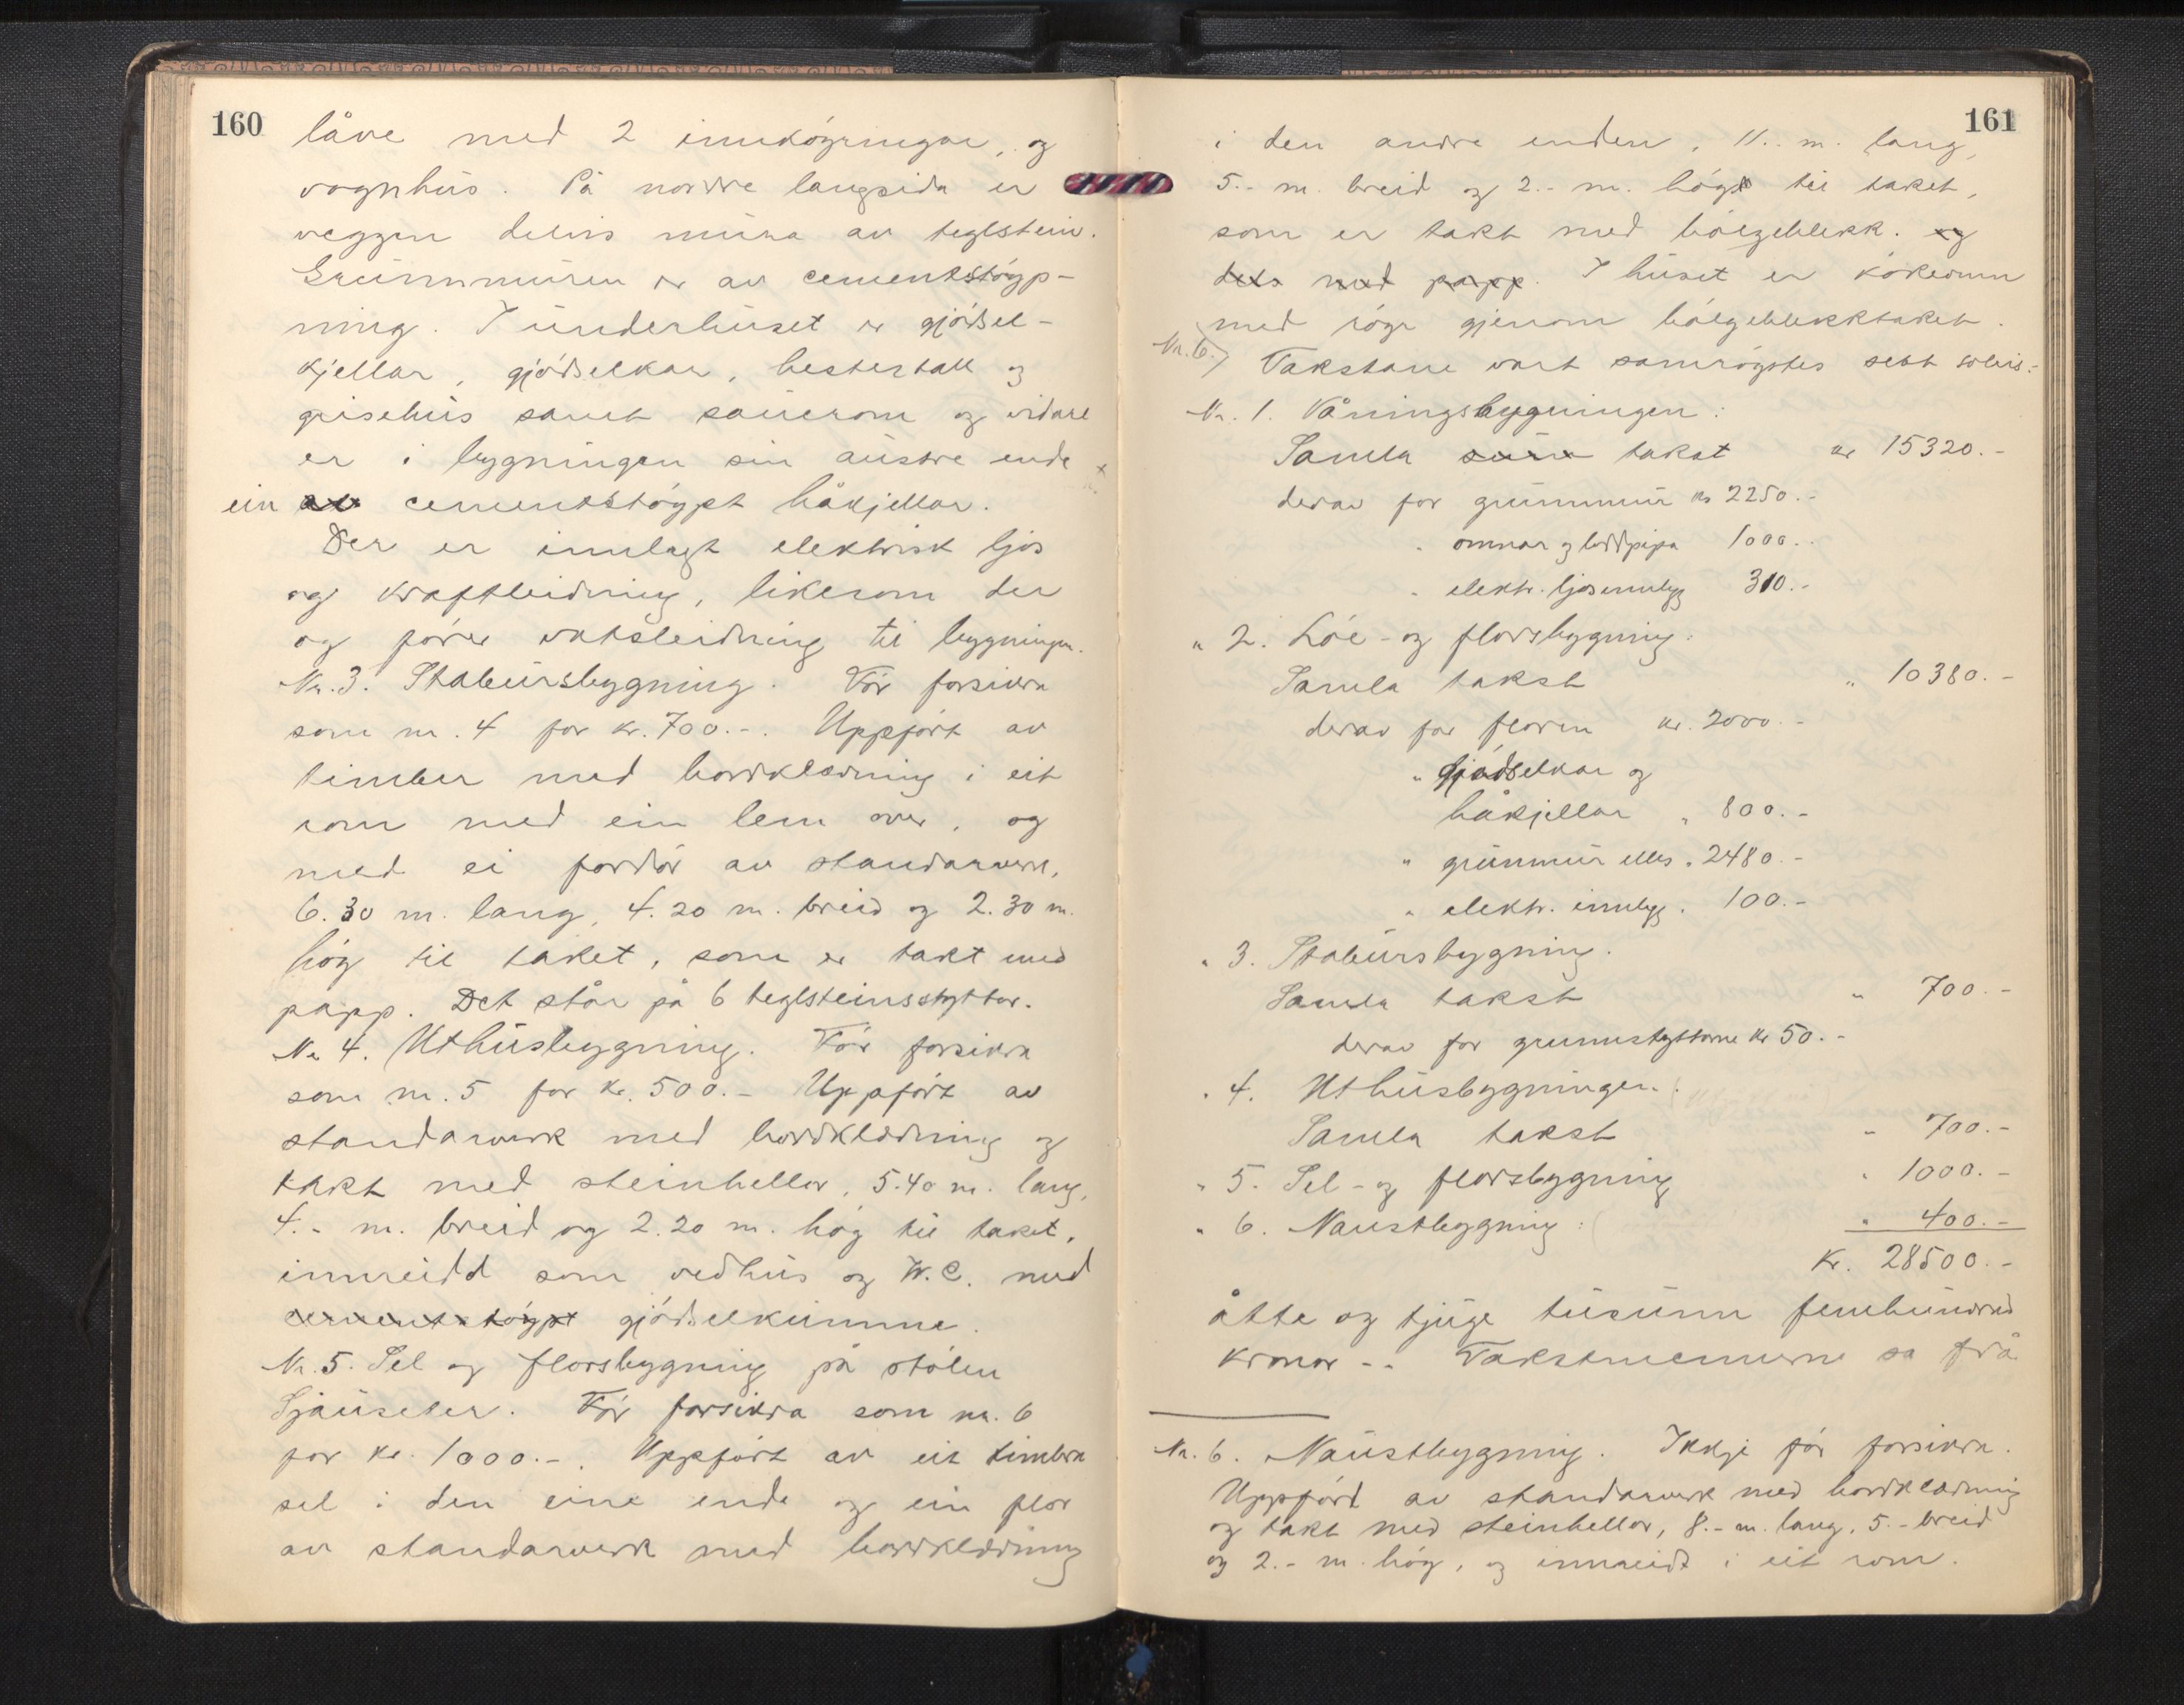 160
låve med 2 innkøyringar, og
vognhus. På nordre langsida er
veggen delvis mura av teglstein.
Grunnmuren er av cementstøyp-
ning. I underhuset er gjødsel-
kjellar, gjødselkar, hestestall og
grisehus samt sauerom og vidare
er i bygningen sin austre ende
ein av cementstøypt håkjellar.
Der er innlagt elektrisk ljos
og kraftleidning, likesom der
og fører vatsleidning til bygningen.
Nr. 3. Stabursbygning. Før forsikra
som nr. 4 for kr. 700.-. Uppført av
timber med bordklædning i eit
rom med ein lem over, og
med ei fordør av standarverk,
6.30 m. lang, 4.20 m. breid og 2.30 m.
høg til taket, som er takt med
papp. Det står på 6 teglsteinsstyttor.
Nr 4. Uthusbygning. Før forsikra
som nr. 5 for kr. 500.- Uppført av
standarverk med bordklædning og
takt med steinhellor, 5.40 m. lang,
4.- m. breid og 2.20 m. høg til taket,
innreidd som vedhus og W.C. med
cementstøypt gjødselkumme.
Nr. 5. Sel og florsbygning på stølen
Sjauseter. Før forsikra som nr. 6
for kr. 1000.-. Uppført av eit timbra
sel i den eine ende og ein flor
av standarverk med bordklædning
161
i den andre enden, 11.- m. lang,
5.- m. breid og 2.- m. høg til taket,
som er takt med bølgeblekk. og
dels med papp. I huset er kokeomn
med røyr gjenom bølgeblekktaket.
Nr. 6.) Takstane vart samrøystes sett soleis:
Nr. 1. Våningsbygningen:
Samla takst kr 15320.-
derav for grunnmur kr 2250.-
" omnar og loddpipa 1000.-
" elektr. ljosinnlegg 310.-
" 2. Løe- og florsbygning:
Samla takst " 10380.-
derav for floren kr. 2000.-
" gjødselkar og
håkjellar " 800.-
" grunnmur elles " 2480.-
" elektr. innlegg " 100.-
" 3. Stabursbygning.
Samla takst " 700.-
derav for grunnstyttorne kr 50.-
" 4. Uthusbygningen:
Samla takst " 700.-
" 5. Sel- og florsbygning " 1000.-
" 6. Naustbygning: " 400.-
Kr. 28500.-
åtte og tjuge tusunn femhundrad
kronor -. Takstmennerne sa frå
Nr. 6. Naustbygning. Ikkje før forsikra.
Uppførd av standarverk med bordklædning
og takt med steinhellor, 8.- m. lang, 5.- breid
og 2.- m. høg, og innreidt i eit rom.